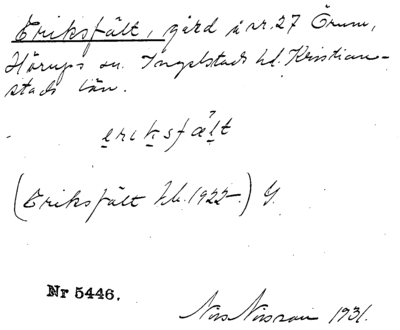 Eriksfält, gård å nr. 27 Örum,
Hörups sn. Ingelstads hd. Kristian-
stads län.
eriksfælt
(Eriksfält hb. 1922-) G.
Nr 5446.
1931.